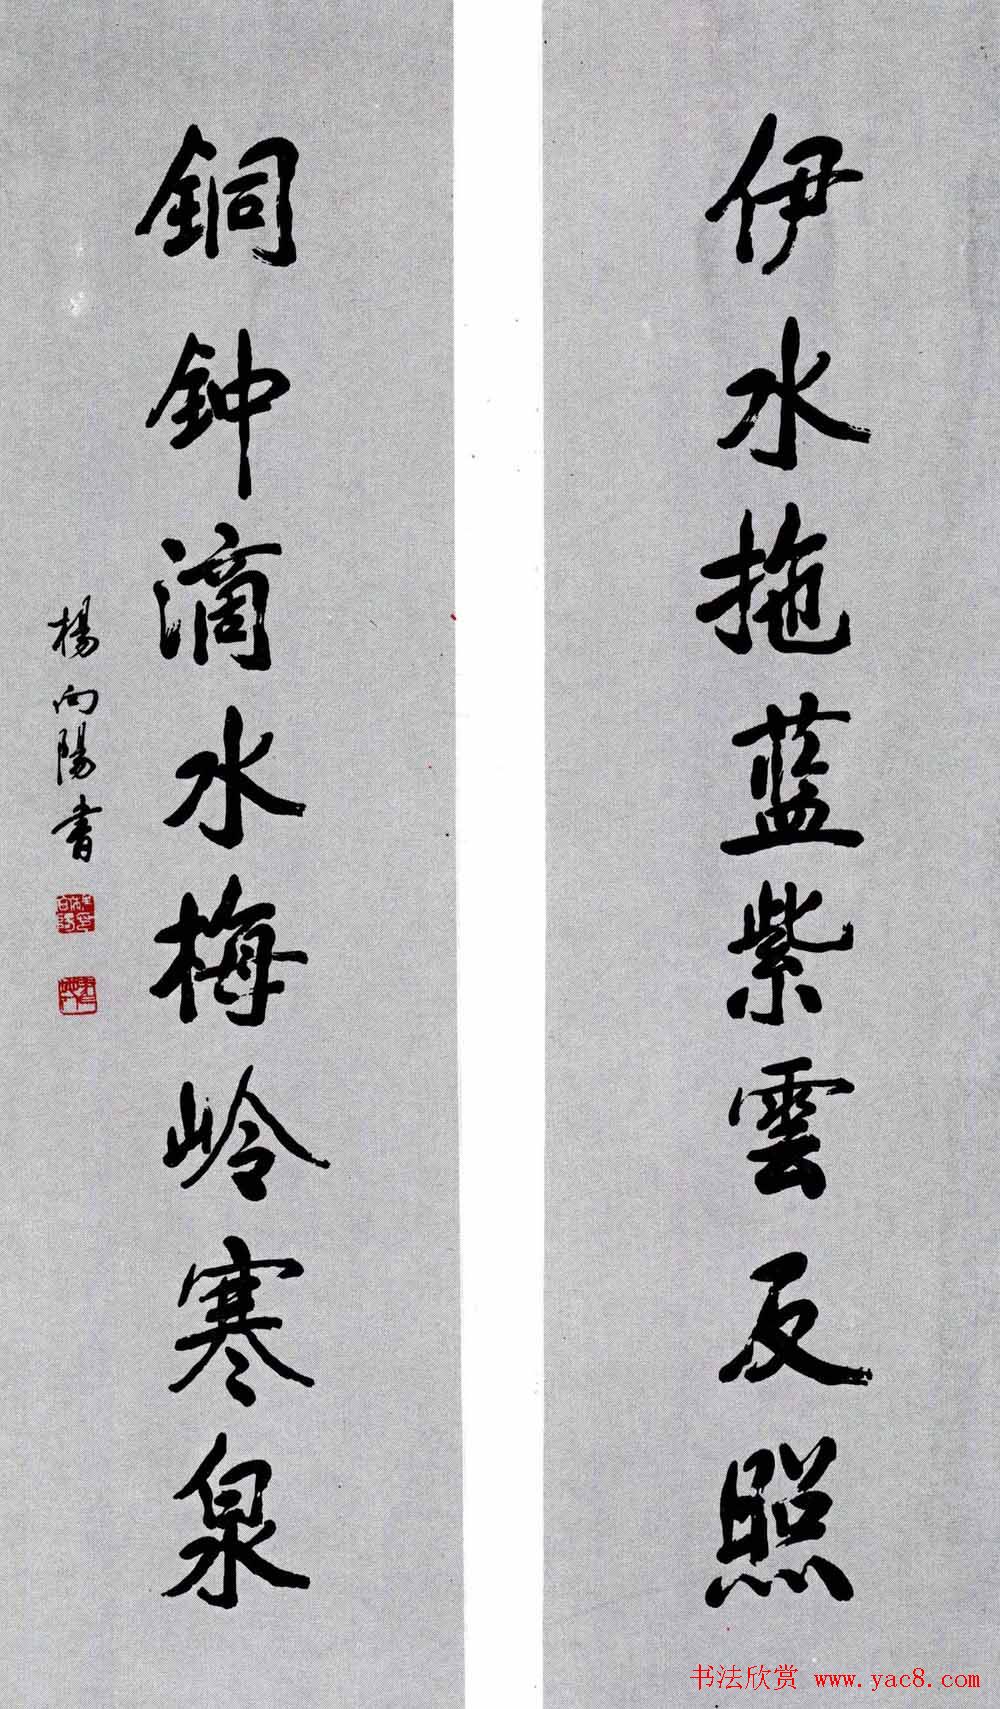 伊水拖蓝紫雲反照
銅鈡滴水梅岭寒泉
楊向陽書
书法欣赏 www.yac8.com